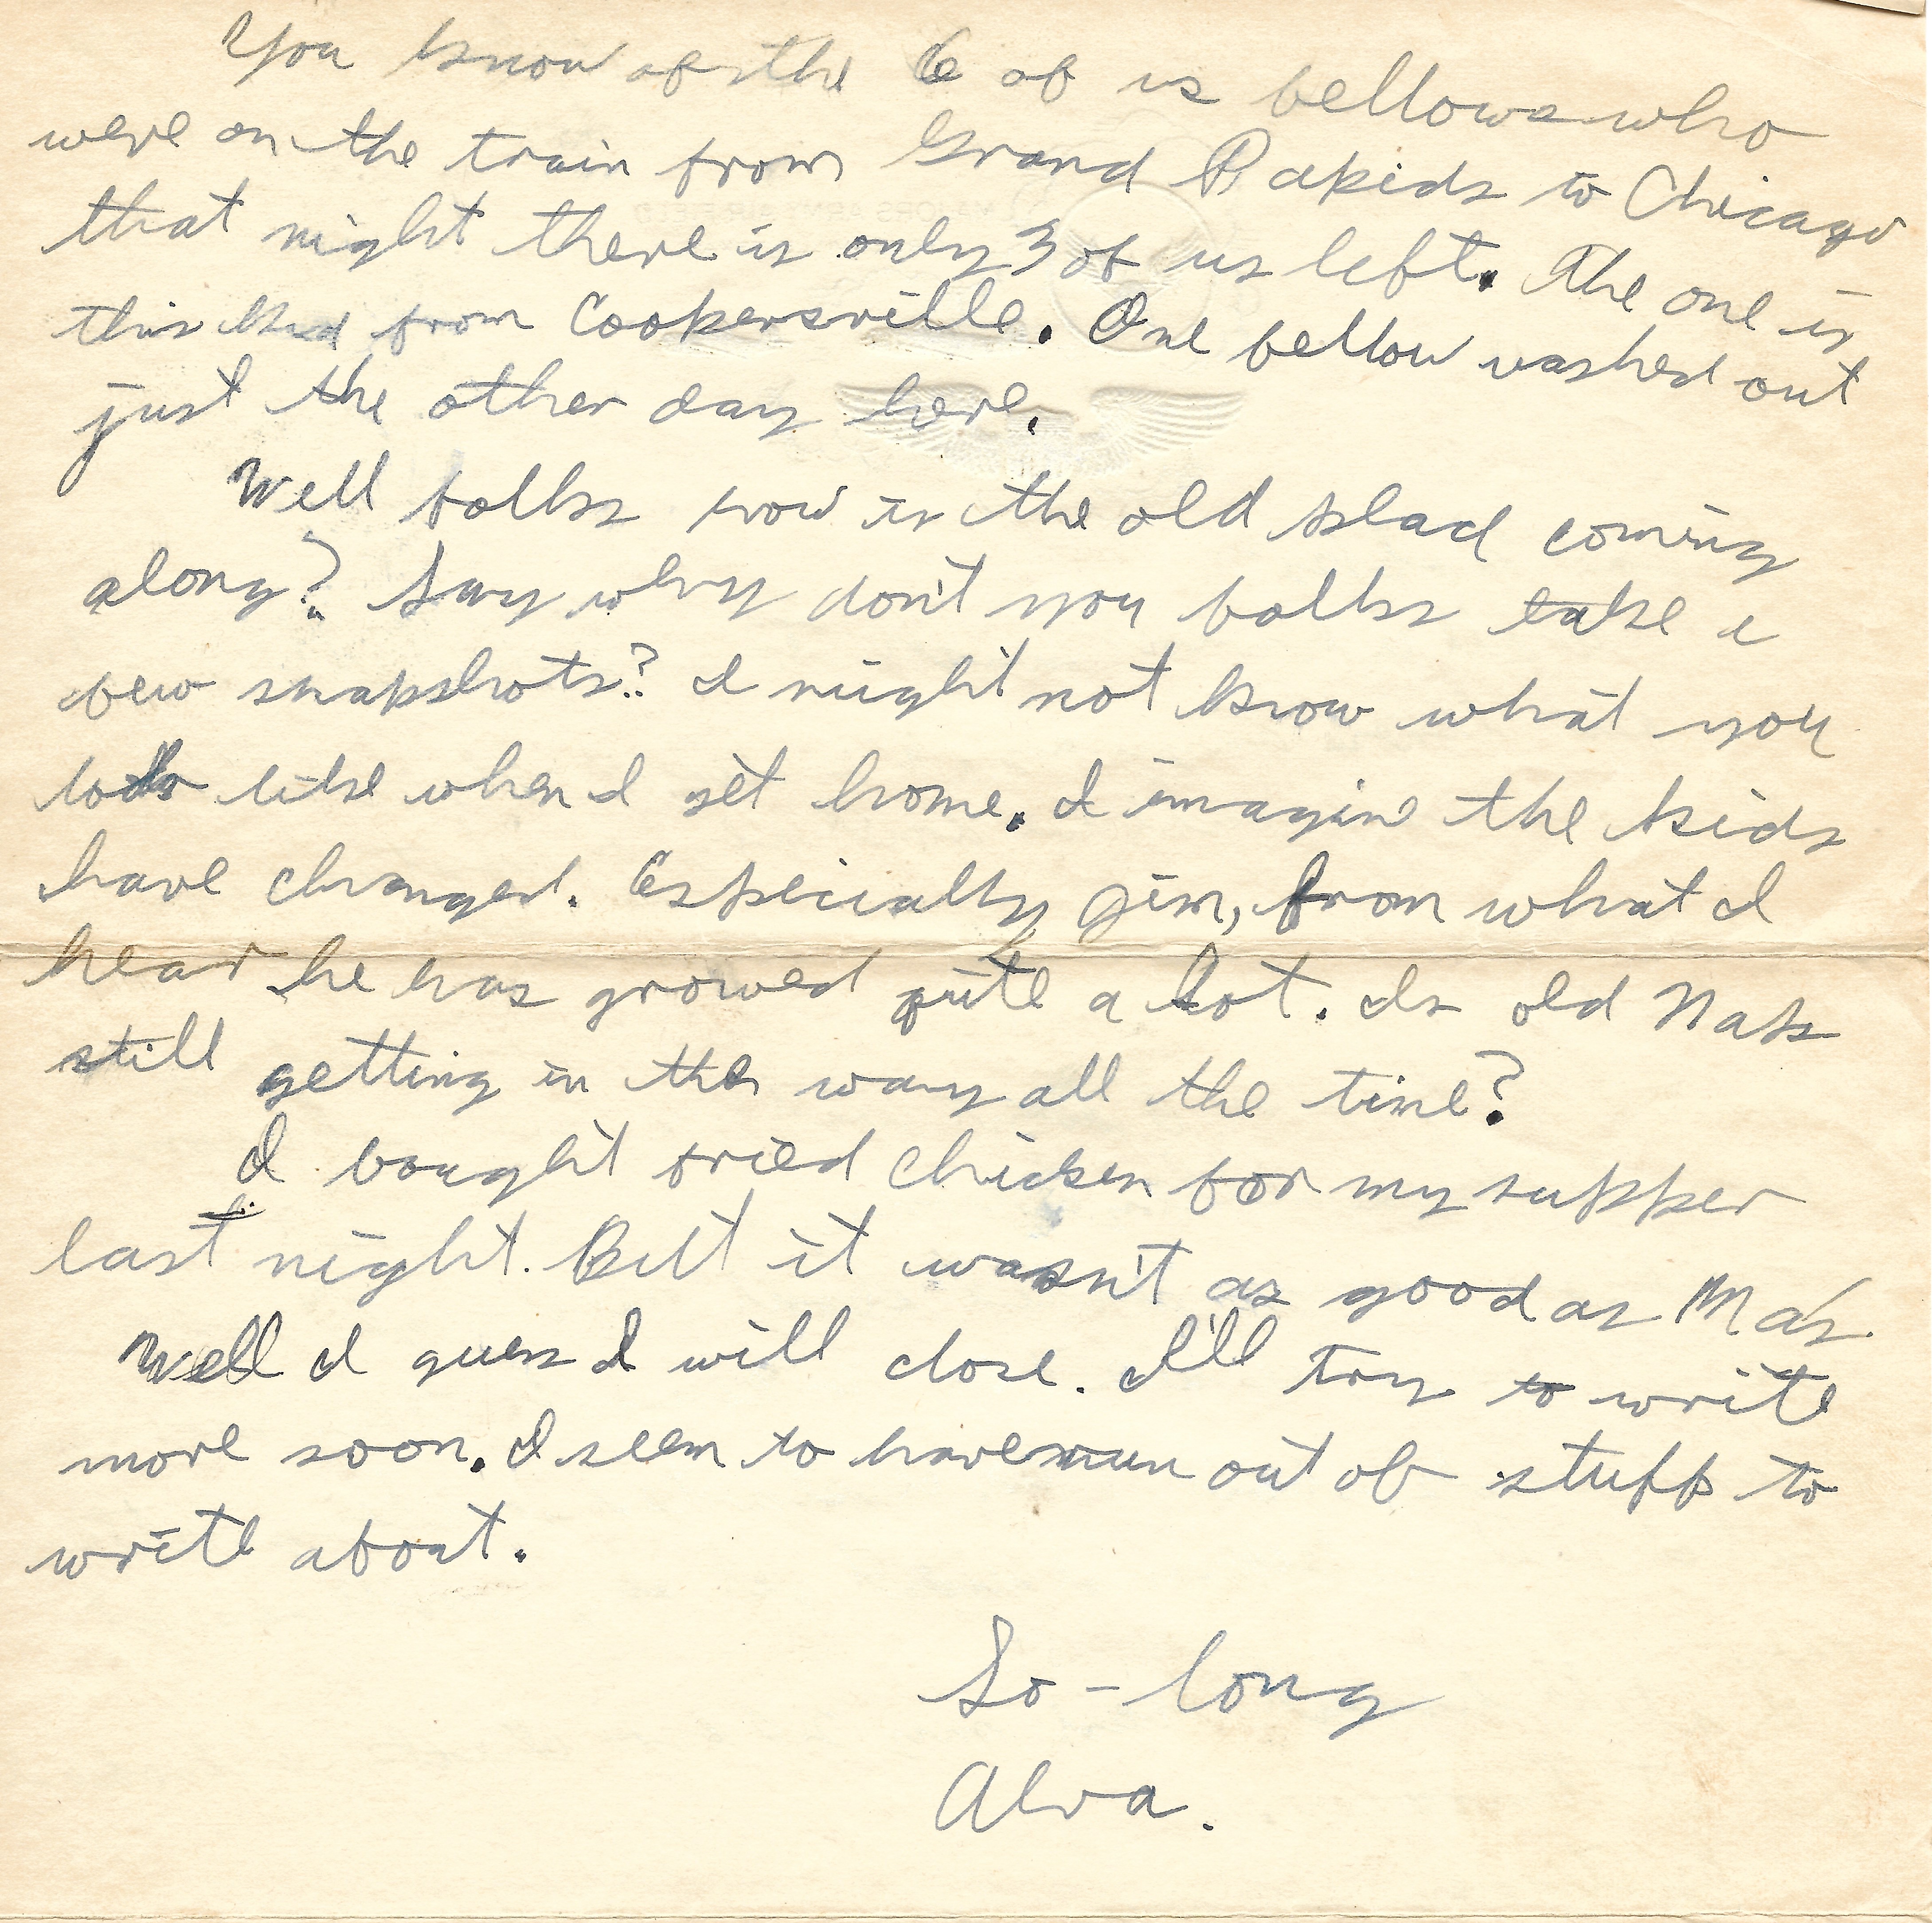 You know of the 6 of us fellows who
were on the train from Grand Rapids to Chicago
that night there is only 3 of us left. The one is
this kid from Coopersville. One fellow washed out
just the other day here.
Well folks how is the old coming
along? Say why don't you folks take a
few snapshots? I might not know what you
look like when I get home. I imagine the kids
have changed. Especially Jim, from what I
hear he has growed quite a lot. Is old
still getting in the way all the time?
I bought fried chicken for my supper
last night. But it wasn't as good as Ma's.
Well I guess I will close. I'll try to write
more soon. I seem to have run out of stuff to
write about.
So-long
Alva.